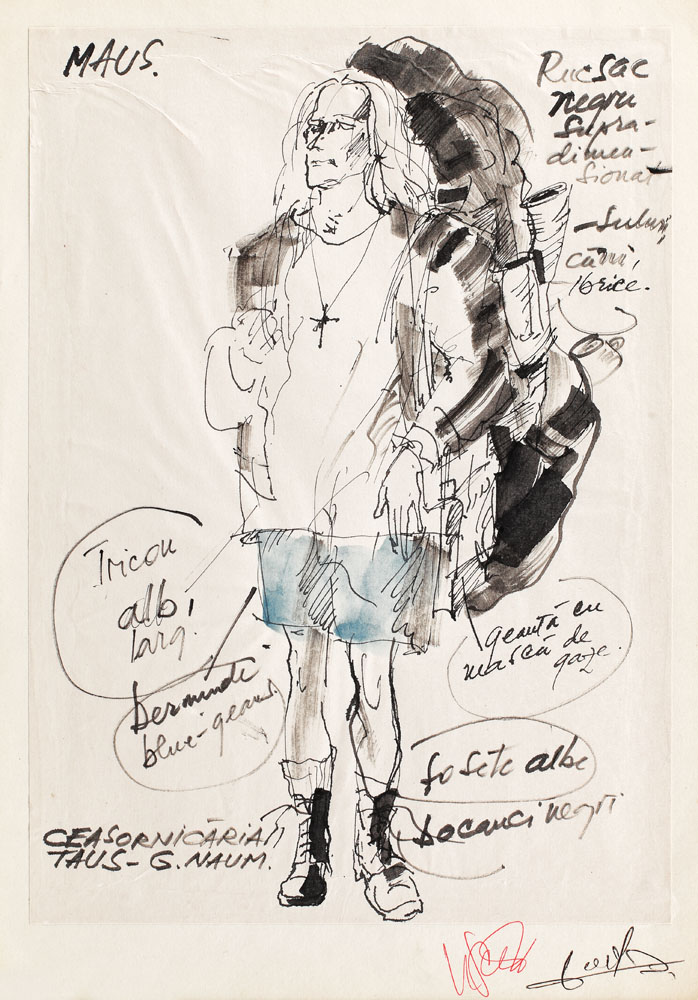 MAUS.
Rucsac
negru
supra-
dimen-
sionat
căni,
ibrice.
Tricou
alb,
larg.
bermude
blue-geans.
geantă cu
mască de
gaze.
șosete albe
bocanci negri
CEASORNICĂRIA
TAUS- G. NAUM.